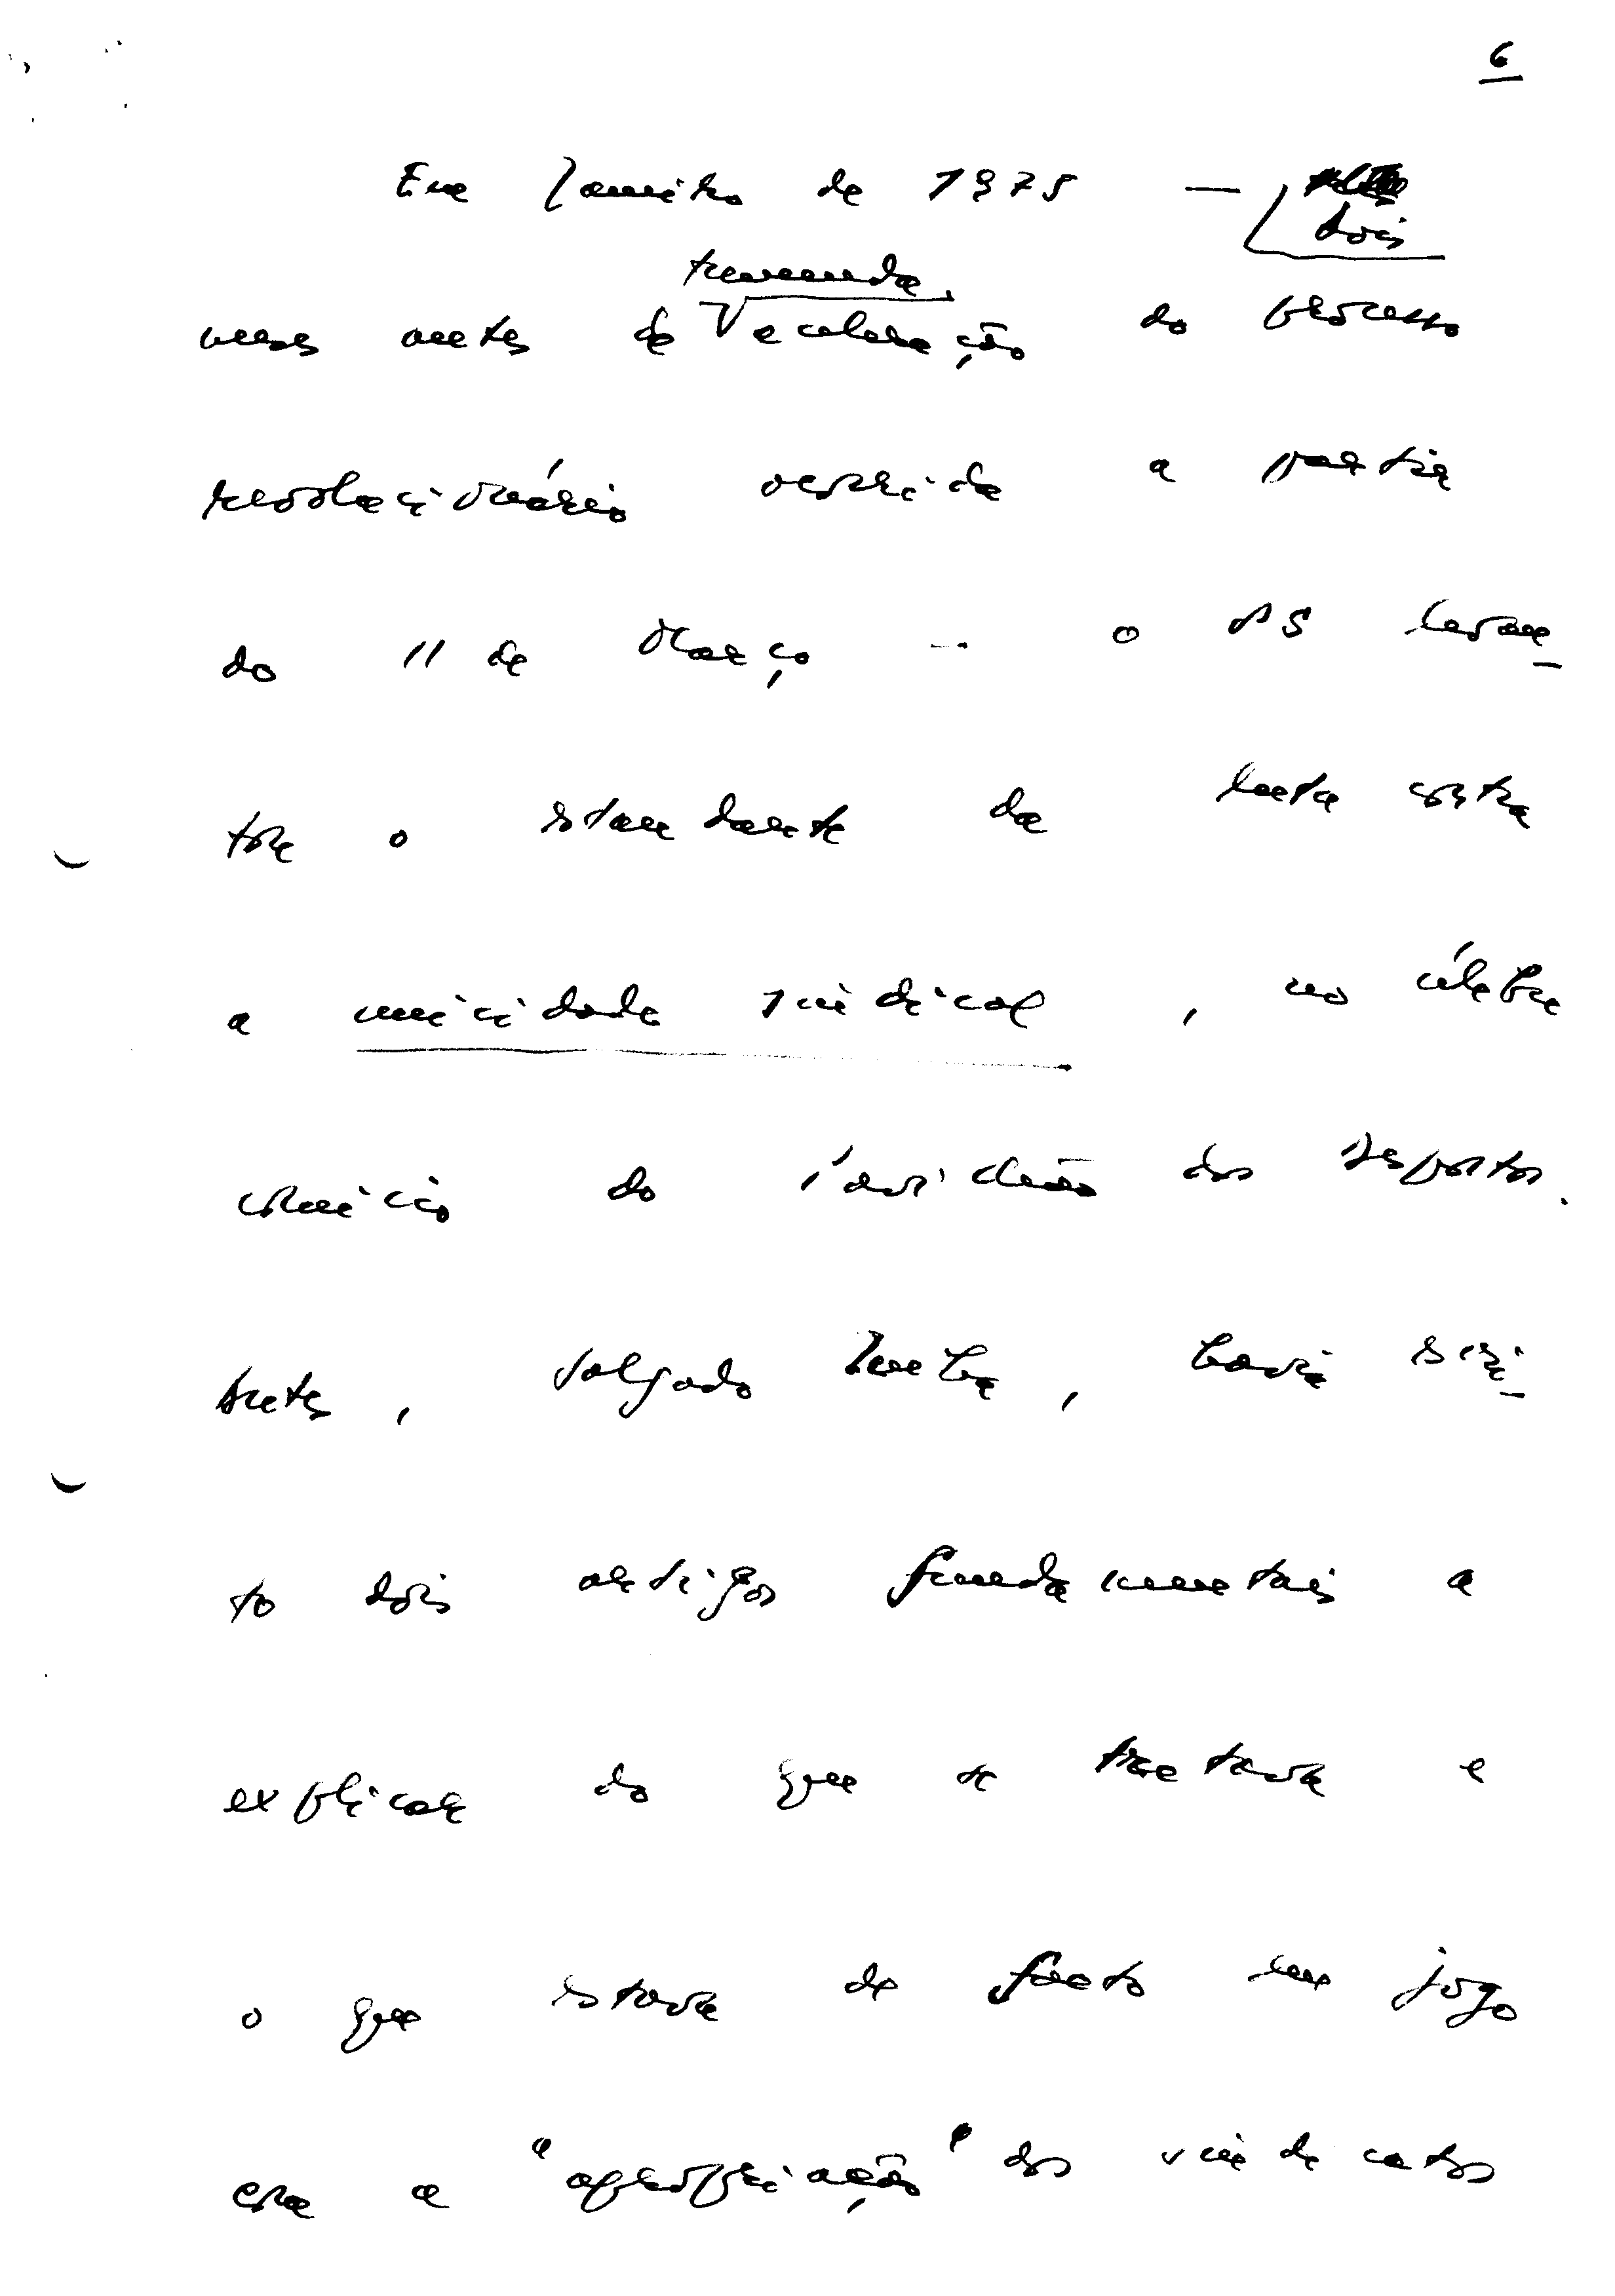 6
Em Janeiro de 1975 — dois
tremenda
meses antes da aceleração do processo
revolucionário ocorrida a partir
do 11 de Março — o PS levan-
tara o estandarte da luta contra
a unicidade sindical, no célebre
comício do Pavilhão dos Desportos.
Antes, Salgado Zenha, havia escri-
to dois artigos fundamentais a
explicar do que se tratava e
o que estava de facto em jogo
era a "apropriação" dos sindicatos